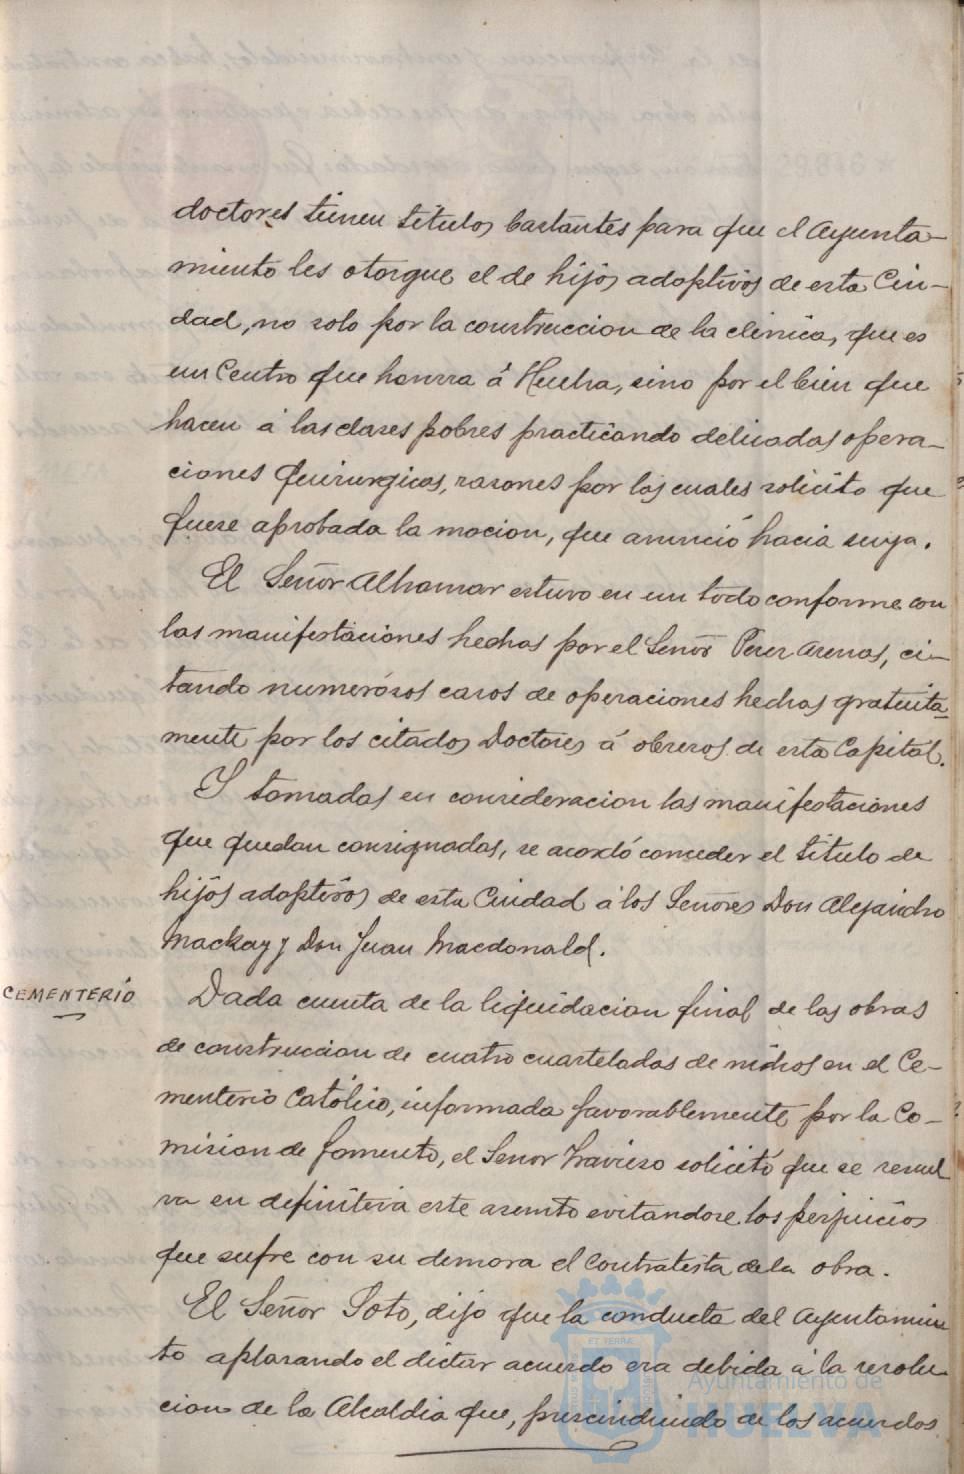 doctores tienen titulos bastantes para que el Ayunta-
miento les otorgue el de hijos adoptivos de esta Ciu-
dad, no solo por la construccion de la clinica, que es
un Centro que honra á Huelva, sino por el bien que
hacen á las clases pobres practicando delicadas opera-
ciones quirurgicas, razones por las cuales solicito que
fuese aprobada la mocion, que anunció hacia suya.
El Señor Alhamar estuvo en un todo conforme con
las manifestaciones hechas por el Señor Perez Arenas, ci-
tando numerosos casos de operaciones hechas gratuita-
mente por los citados Doctores á obreros de esta Capital.
Y tomadas en consideracion las manifestaciones
que quedan consignadas, se acordó conceder el titulo de
hijos adoptivos de esta Ciudad á los Señores Don Alejandro
Mackay y Don Juan Macdonald.
CEMENTERIO
Dada cuenta de la liquidacion final de las obras
de construccion de cuatro cuarteladas de nichos en el Ce-
menterio Católico, informada favorablemente por la Co-
mision de fomento, el Señor Travieso solicitó que se resuel
va en definitiva este asunto evitandose los perjuicios
que sufre con su demora el contratista de la obra.
El Señor Soto, dijo que la conducta del Ayuntamien
to aplazando el dictar acuerdo era debida á la resolu-
cion de la Alcaldia que, prescindiendo de los acuerdos
Ayuntamiento de
HUELVA